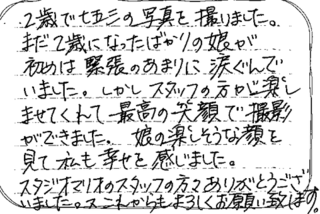 2歳で七五三の写真を撮りました。
まだ2歳になったばかりの娘が
初めは緊張のあまりに涙ぐんで
いました。しかしスタッフの方が楽し
ませてくれて最高の笑顔で撮影
ができました。娘の楽しそうな顔を
見て私も幸せを感じました。
スタジオマリオのスタッフの方々ありがとうござ
いました。又これからもよろしくお願い致します。